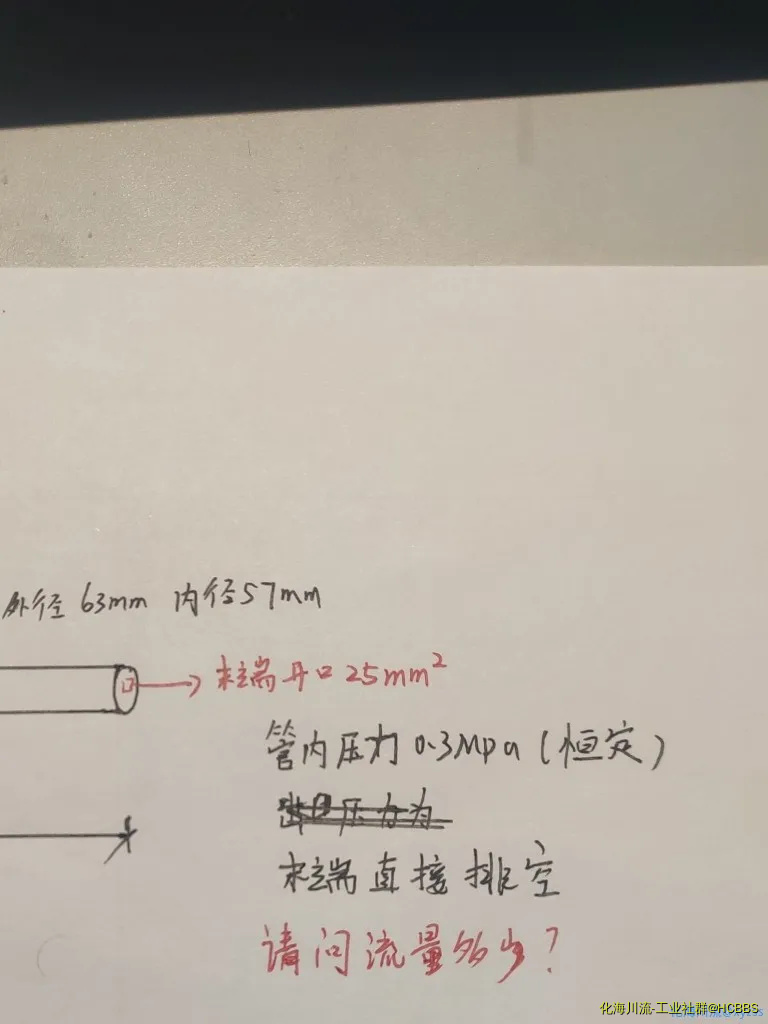 外径 63mm 内径57mm
末端开口 25mm²
管内压力 0.3Mpa (恒定)
出口压力为
末端直接排空
请问流量多少?
化海川流-工业社群@HCBBS